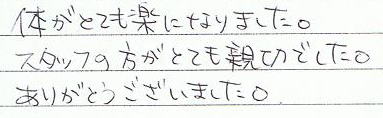 体がとても楽になりました。
スタッフの方がとても親切でした。
ありがとうございました。